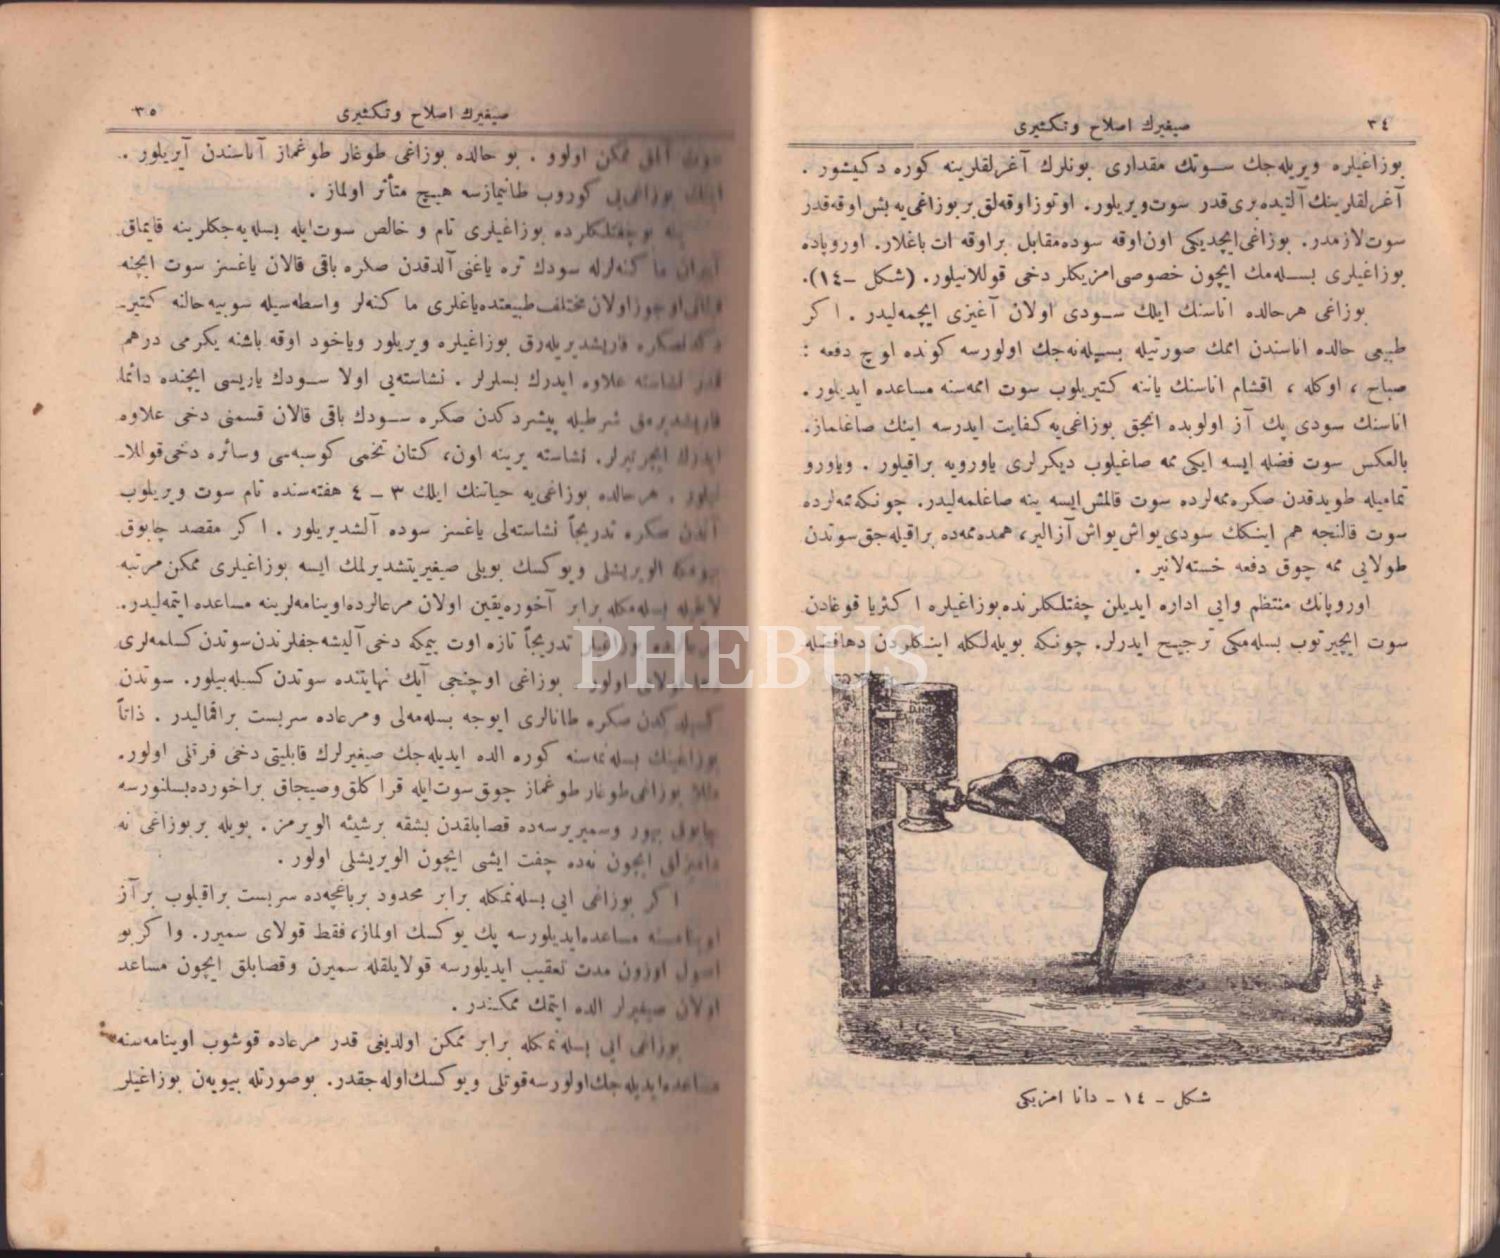 ٣٤
صیغیرك اصلاح وتكثیری
بوزاغیلره ویریله‌جك سوتك مقداری بونلرك آغرلقلرینه كوره دكیشور .
آغرلقلرینك آلتیده بری قدر سوت ویریلور. اوتوز اوقه‌لق بر بوزاغی‌یه بش اوقه قدر
سوت لازمدر. بوزاغی ایچدیكی اون اوقه سوده مقابل بر اوقه ات باغلار. اوروپاده
بوزاغیلری بسله‌مك ایچون خصوصی امزیكلر دخی قوللانیلور. (شكل -١٤).
بوزاغی هر حالده اناسنك ایلك سودی اولان آغیزی ایچمه‌لیدر . اكر
طبیعی حالده اناسندن اممك صورتیله بسیله‌نه‌جك اولورسه كونده اوچ دفعه :
صباح ، اوكله ، اقشام اناسنك یاننه كتیریلوب سوت اممه‌سنه مساعده ایدیلور.
اناسنك سودی پك آز اولوبده انجق بوزاغی‌یه كفایت ایدرسه اینك صاغلماز.
بالعكس سوت فضله ایسه ایكی ممه صاغیلوب دیكرلری یاورویه براقیلور . ویاورو
تمامیله طویدقدن صكره ممه‌لرده سوت قالمش ایسه ینه صاغلمه‌لیدر. چونكه ممه‌لرده
سوت قالنجه هم اینكك سودی یواش یواش آزالیر، همده ممه‌ده براقیله‌جق سوتدن
طولایی ممه چوق دفعه خسته‌لانیر .
اوروپانك منتظم وایی اداره ایدیلن چفتلكلرنده بوزاغیلره اكثریا قوغادن
سوت ایچیرتوب بسله‌مكی ترجیح ایدرلر. چونكه بویله‌لكله اینكلردن دها فضله
شكل - ١٤ - دانا امزیكی
٣٥
صیغیرك اصلاح وتكثیری
سوت آلمق ممكن اولور . بو حالده بوزاغی طوغار طوغماز آناسندن آیریلور .
اینك بوزاغی‌یی كوروب طانیمازسه هیچ متأثر اولماز .
بو چفتلكلرده بوزاغیلری تام و خالص سوت ایله بسله‌یه‌جكلرینه قایماق
ماكنه‌لرله سودك تره یاغنی آلدقدن صكره باقی قالان یاغسز سوت ایچنه
اوجوز اولان مختلف طبیعتده یاغلری ماكنه‌لر واسطه‌سیله سوبیه حالنه كتیر-
دكدنصكره قاریشدیریله‌رق بوزاغیلره ویریلور ویاخود اوقه باشنه یكرمی درهم
قدر نشاسته علاوه ایدرك بسلرلر . نشاسته‌یی اولا سودك یاریسی ایچنده دائما
قاریشدیرمق شرطیله پیشردكدن صكره سودك باقی قالان قسمنی دخی علاوه
ایدرك ایچرتیرلر. نشاسته یرینه اون، كتان تخمی كوسبه‌سی وسائره دخی قوللا-
نیلور . هر حالده بوزاغی‌یه حیاتنك ایلك ٣ - ٤ هفته‌سنده تام سوت ویریلوب
آندن صكره تدریجاً نشاسته‌لی یاغسز سوده آلشدیریلور . اكر مقصد چابوق
الویریشلی ویوكسك بویلی صیغیر یتشدیرلمك ایسه بوزاغیلری ممكن مرتبه
بسله‌مكله برابر آخوره یقین اولان مرعالرده اوینامه‌لرینه مساعده ایتمه‌لیدر.
بوزاغیلر تدریجاً تازه اوت ییمكه دخی آلیشه‌جقلرندن سوتدن كسلمه‌لری
قولای اولور . بوزاغی اوچنجی آیك نهایتنده سوتدن كسیله‌بیلور. سوتدن
كسیلدكدن صكره طانالری ایوجه بسله‌مه‌لی ومرعاده سربست براقمالیدر . ذاتاً
بوزاغینك بسله‌نمه‌سنه كوره الده ایدیله‌جك صیغیرلرك قابلیتی دخی فرقلی اولور.
مثلا بوزاغی طوغار طوغماز چوق سوت ایله قراكلق وصیجاق بر اخورده بسلنورسه
چابوق بیور وسمیریرسه‌ده قصابلقدن بشقه بر شیئه الویرمز . بویله بر بوزاغی نه
دامیزلق ایچون نه‌ده چفت ایشی ایچون الویریشلی اولور .
اكر بوزاغی ایی بسله‌نمكله برابر محدود بر باغچه‌ده سربست براقیلوب بر آز
اوینامسنه مساعده ایدیلورسه پك یوكسك اولماز، فقط قولای سمیرر. واكر بو
اصول اوزون مدت تعقیب ایدیلورسه قولایلقله سمیرن وقصابلق ایچون مساعد
اولان صیغیرلر الده ایتمك ممكندر .
بوزاغی ایی بسله‌نمكله برابر ممكن اولدیغی قدر مرعاده قوشوب اوینامه‌سنه
مساعده ایدیله‌جك اولورسه قوتلی ویوكسك اوله‌جقدر. بو صورتله بیویه‌ن بوزاغیلر
PHEBUS